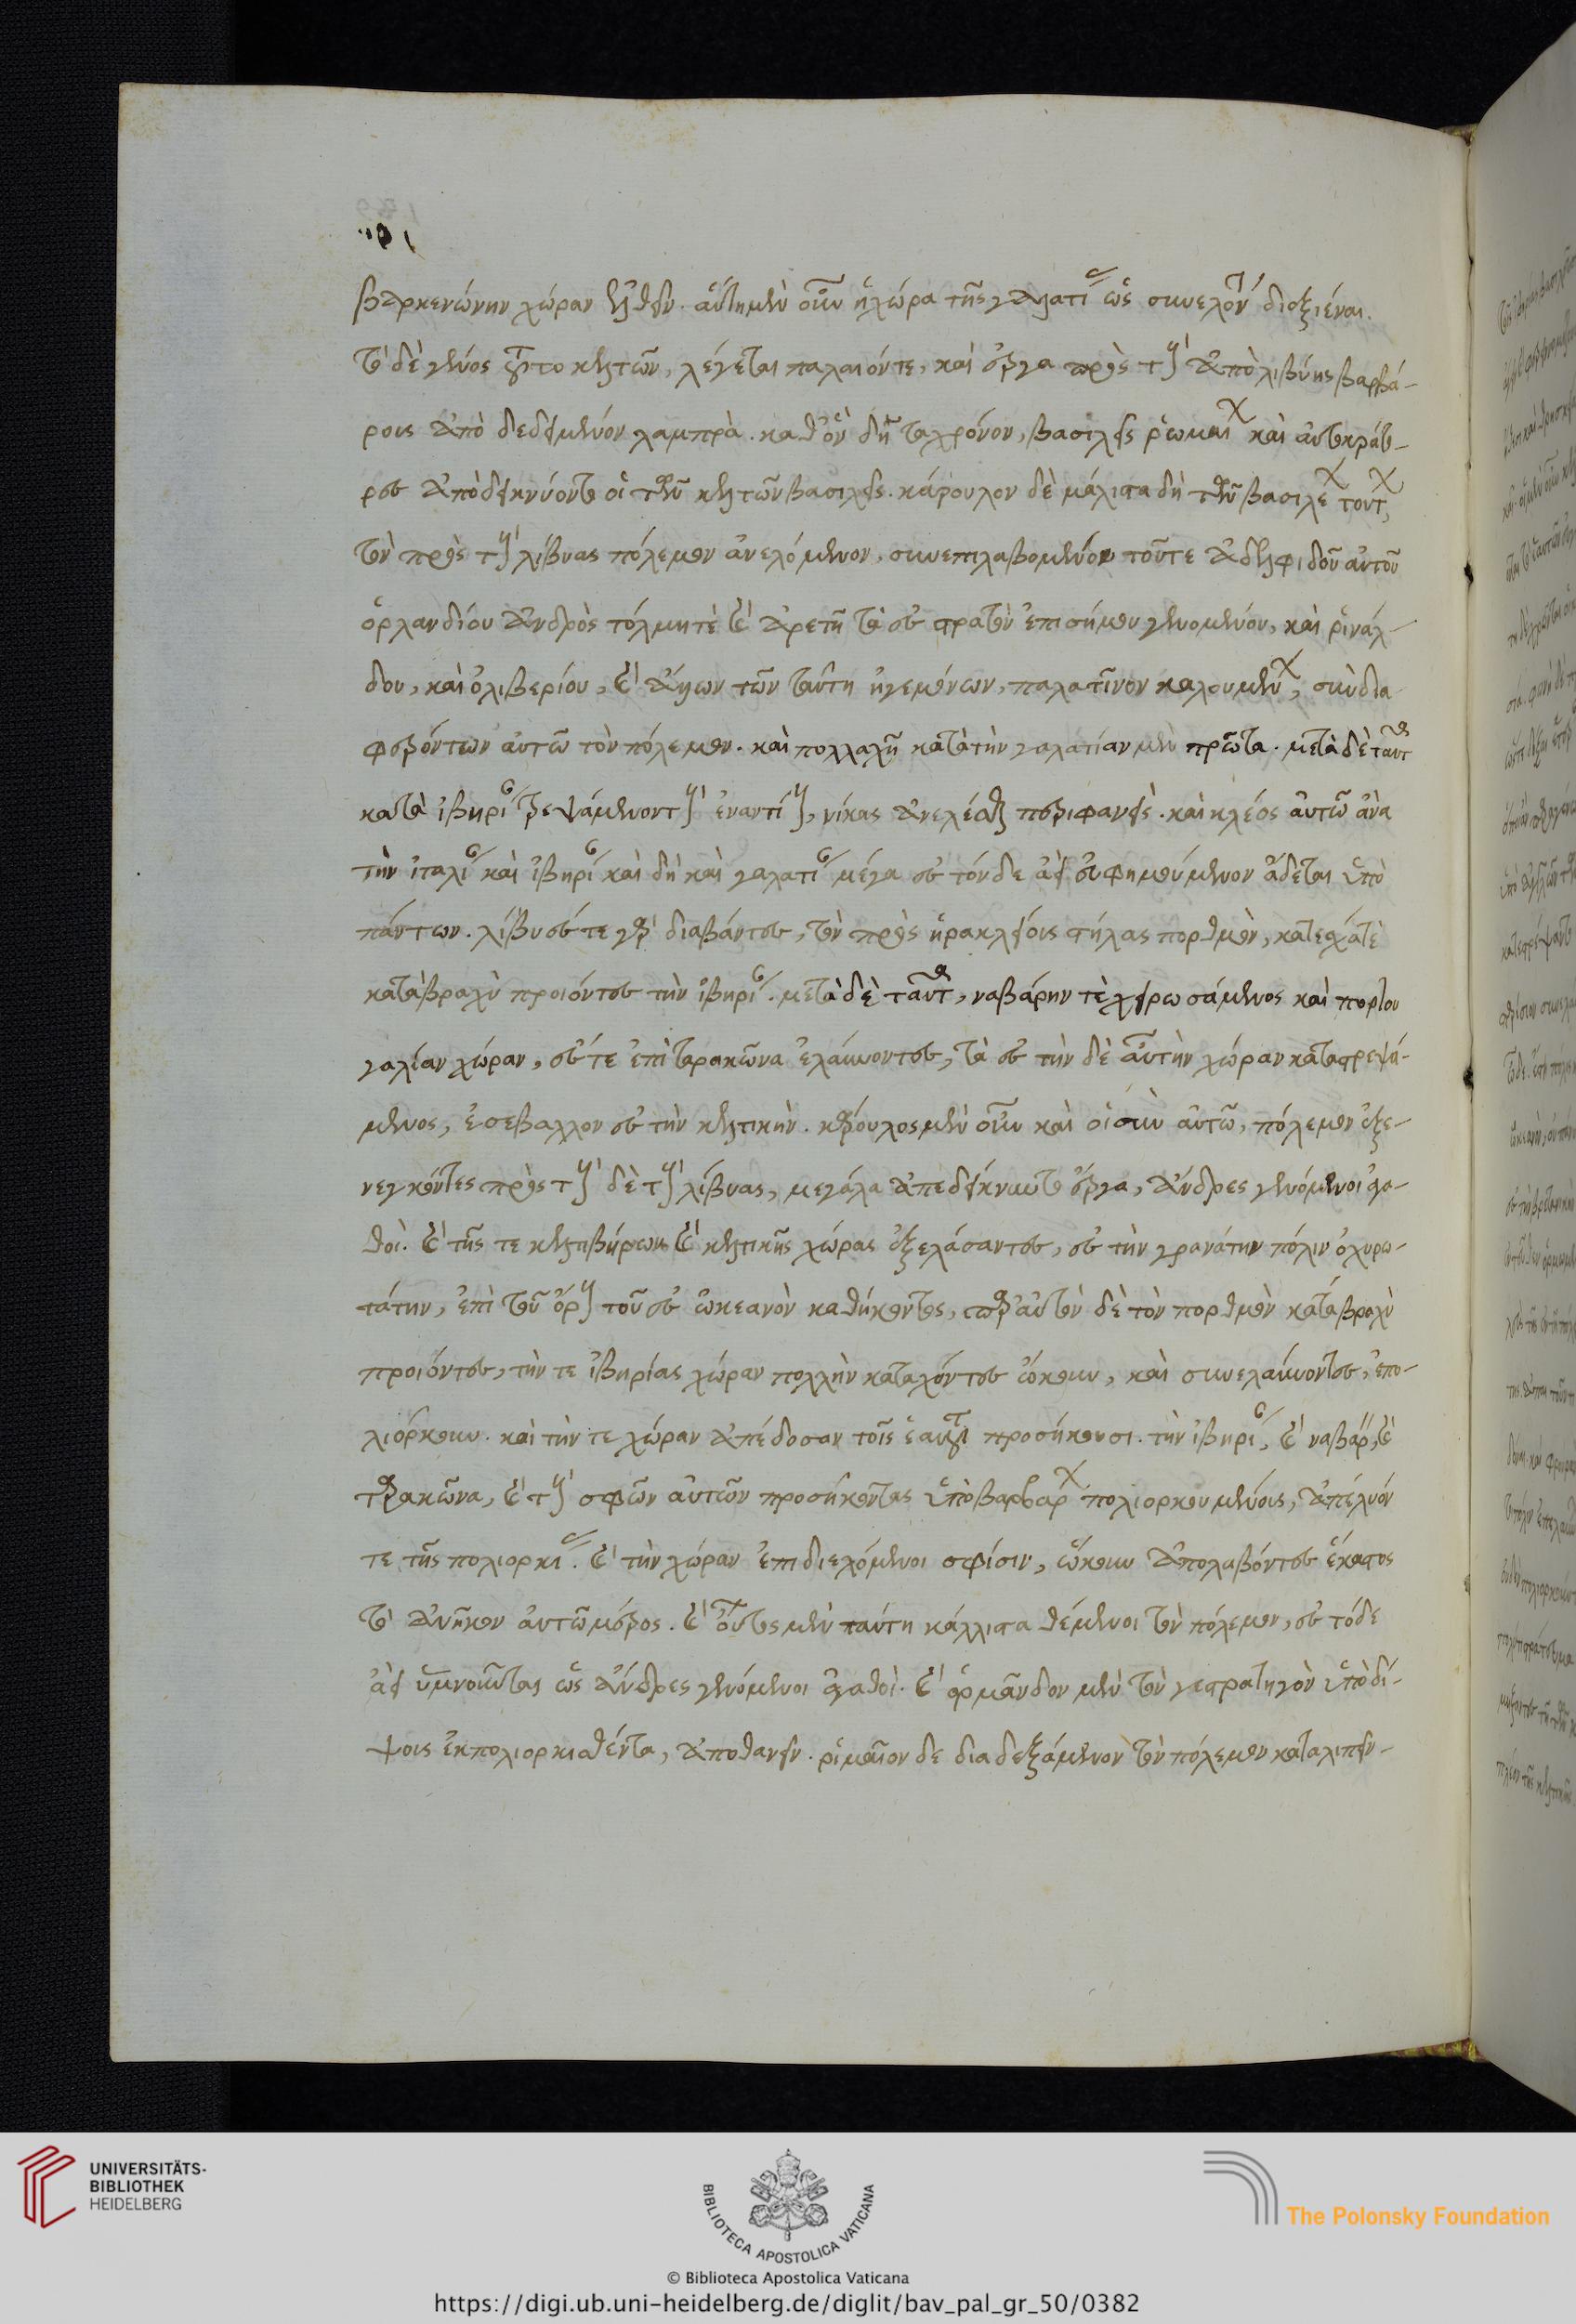 βαρκενώνην χώραν ἐλθεῖν. αὕτη μὲν οὖν ἡ χώρα τῆς γαλατίας ὡς συνελόντι διεξιέναι.
τὸ δὲ γένος τοῦτο κελτῶν, λέγεται παλαιόν τε, καὶ ἔργα πρὸς τοὺς ἀπὸ λιβύης βαρβά-
ροις ἀπὸ δεδειγμένον λαμπρὰ. καθ' ὃν δὴ τα χρόνον, βασιλεῖς ῥωμαίων καὶ αὐτοκράτο-
ρες ἀπὸ δεικνύοντο οἱ τῶν κελτῶν βασιλεῖς. κάρουλον δὲ μάλιστα δὴ τῶν βασιλέων τούτων,
τὸν πρὸς τοὺς λίβυας πόλεμον ἀνελόμενον, συνεπιλαβομένου τοῦτε ἀδελφιδοῦ αὐτοῦ
ὀρλανδίου ἀνδρὸς τόλμητὲ καὶ ἀρετῆ τὰ ἐς στρατὸν ἐπισήμου γενομένου, καὶ ῥινάλ-
δου, καὶ ὀλιβερίου, καὶ ἄλλων τῶν ταύτη ἡγεμόνων, παλατῖνον καλουμένων, συνδια
φερόντων αὐτῶ τὸν πόλεμον. καὶ πολλαχῆ κατὰ τὴν γαλατίαν μὲν πρῶτα. μετὰ δὲ ταῦτα
κατὰ ἰβηρίαν τρεψάμενον τοὺς ἐναντίους, νίκας ἀνελέσθαι περιφανεῖς. καὶ κλέος αὐτῶ ἀνα
τὴν ἰταλίαν καὶ ἰβηρίαν καὶ δὴ καὶ γαλατίαν μέγα ἐς τόνδε ἀεὶ εὐφημούμενον ἄδεται ὑπὸ
πάντων. λίβυές τε γὰρ διαβάντες, τὸν πρὸς ἡρακλείοις στήλας πορθμὸν, κατεσχάτε
κατὰ βραχὺ προιόντες τὴν ἰβηρίαν. μετὰ δὲ ταῦτα, ναβάρην τὲ χειρωσάμενος καὶ πορτου
γαλίαν χώραν, ἐς τε ἐπὶ ταρακῶνα ἐλαύνοντες, τὰ ἐς τὴν δὲ αὐτὴν χώραν καταστρεψά-
μενος, ἐσεβαλλον ἐς τὴν κελτικὴν. κάρουλος μὲν οὖν καὶ οἱ σὺν αὐτῶ, πόλεμον ἐξε-
νεγκόντες πρὸς τοὺς δὲ τοὺς λίβυας, μεγάλα ἀπεδείκνυντο ἔργα, ἄνδρες γενόμενοι ἀγα-
θοὶ. καὶ τῆς τε κελτιβήρων καὶ κελτικῆς χώρας ἐξελάσαντες, ἐς τὴν γρανάτην πόλιν ὀχυρω-
τάτην, ἐπὶ τοῦ ὄρους τοῦ ἐς ὠκεανὸν καθήκοντος, παρ' αὐτὸν δὲ τὸν πορθμὸν κατὰ βραχὺ
προιόντες, τήν τε ἰβηρίας χώραν πολλὴν κατασχόντες ὤκουν, καὶ συνελαύνοντες, ἐπο-
λιόρκουν. καὶ τὴν τε χώραν ἀπέδοσαν τοῖς ἑαυτῶν προσήκουσι. τὴν ἰβηρίαν, καὶ ναβάρην, καὶ
ταρακῶνα, καὶ τοὺς σφῶν αὐτῶν προσήκοντας ὑπὸ βαρβάρων πολιορκουμένοις, ἀπέλυόν
τε τῆς πολιορκίας. καὶ τὴν χώραν ἐπιδιελόμενοι σφίσιν, ὤκουν ἀπολαβόντες ἕκαστος
τὸ ἀνῆκον αὐτῶ μέρος. καὶ οὗτος μὲν ταύτη κάλλιστα θέμενοι τὸν πόλεμον, ἐς τόδε
ἀεὶ ὑμνοῦνται ὡς ἄνδρες γενόμενοι ἀγαθοὶ. καὶ ὀρμᾶνδον μὲν τόν γε στρατηγὸν ὑπὸ δί-
ψοις ἐκπολιορκιαθέντα, ἀποθανεῖν. ῥιμαῖον δε διαδεξάμενον τὸν πόλεμον καταλιπεῖν-
UNIVERSITÄTS-
BIBLIOTHEK
HEIDELBERG
BIBLIOTECA APOSTOLICA VATICANA
The Polonsky Foundation
© Biblioteca Apostolica Vaticana
https://digi.ub.uni-heidelberg.de/diglit/bav_pal_gr_50/0382